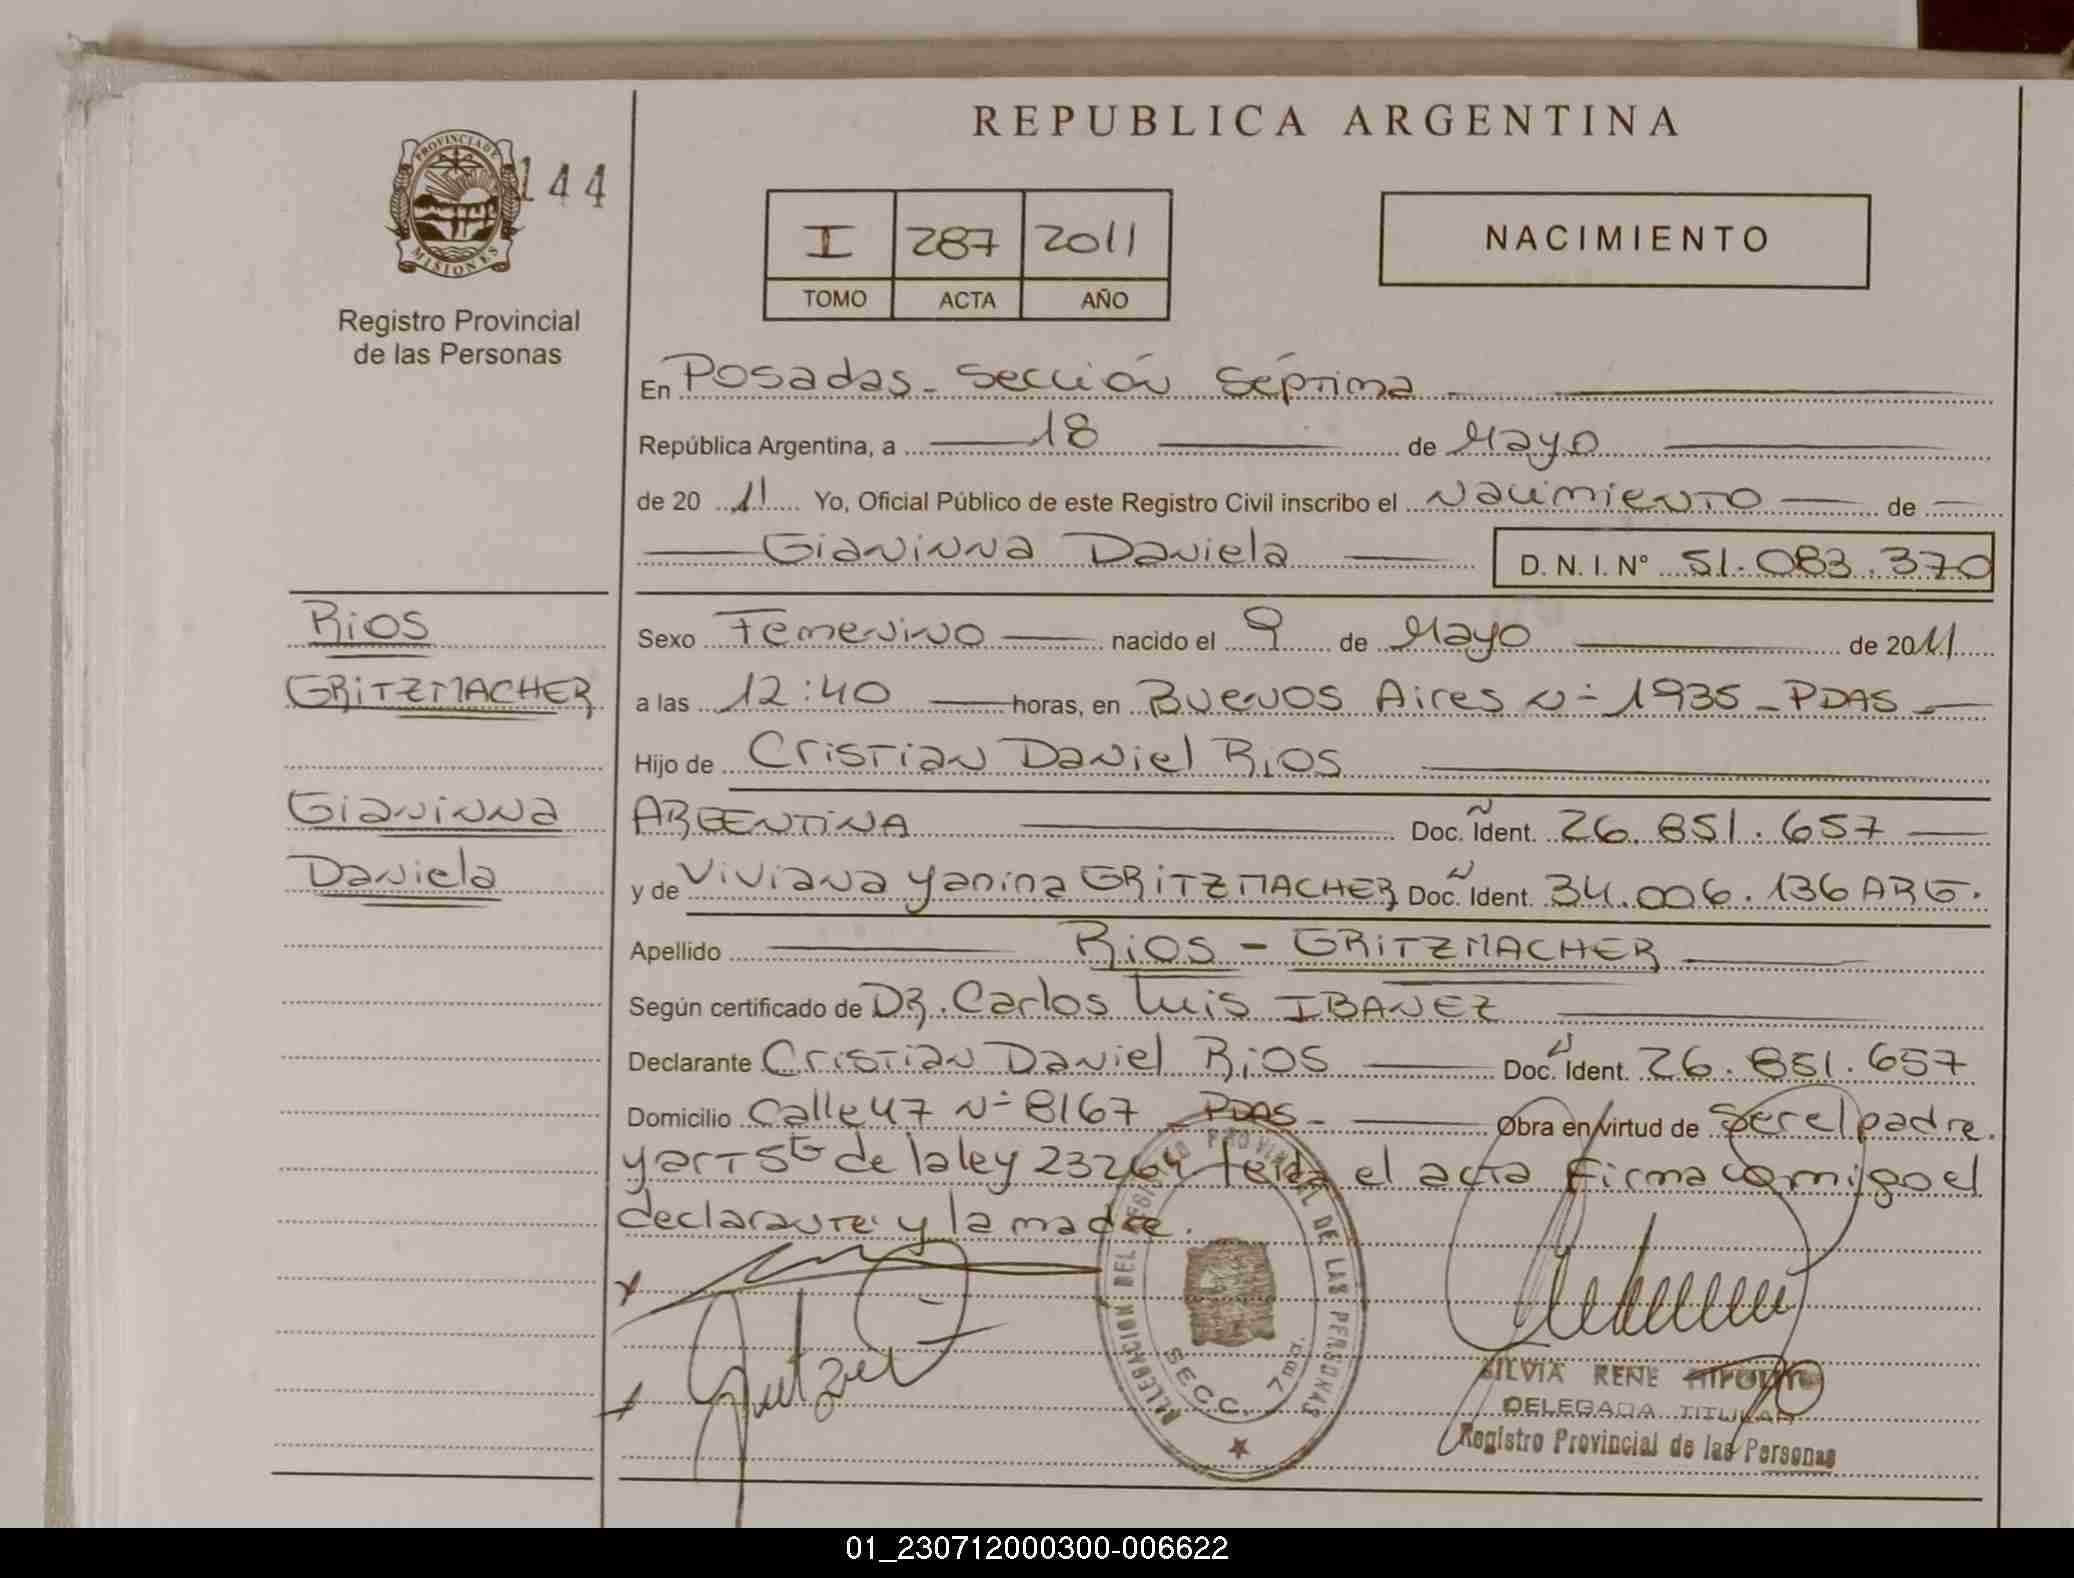 REPUBLICA ARGENTINA
PROVINCIA DE
MISIONES
144
Registro Provincial
de las Personas
I 287 2011
TOMO ACTA AÑO
NACIMIENTO
En Posadas - Sección Séptima -
República Argentina, a 18 de Mayo
de 20 11 Yo, Oficial Público de este Registro Civil inscribo el Nacimiento de
Gianinna Daniela D. N. I. N° 51.083.370
Rios
GRITZMACHER
Gianinna
Daniela
Sexo Femenino nacido el 9 de Mayo de 2011
a las 12:40 horas, en Buenos Aires N° 1935 - PDAS -
Hijo de Cristian Daniel Rios
ARGENTINA Doc. Ident. 26.851.657
y de Viviana Yanina GRITZMACHER Doc. Ident. 34.006.136 ARG.
Apellido Rios - GRITZMACHER
Según certificado de DR. Carlos Luis IBANEZ
Declarante Cristian Daniel Rios Doc. Ident. 26.851.657
Domicilio Calle 47 N° 8167 PDAS - Obra en virtud de ser el padre.
y art 5to de la ley 23264 leida el acta firma comigo el
declarante y la madre.
DELEGACION DEL REGISTRO PROVINCIAL DE LAS PERSONAS
SECC. 7ma.
SILVIA RENE
DELEGADA TITULAR
Registro Provincial de las Personas
01_230712000300-006622